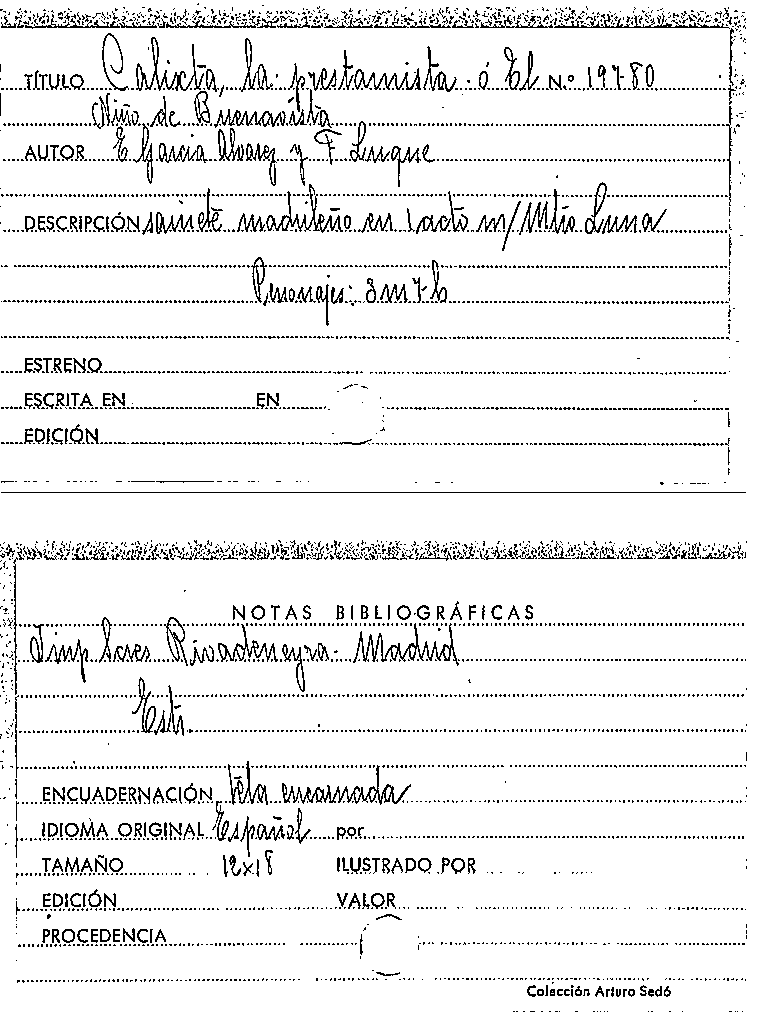 TÍTULO Calixta, la prestamista ó El N.º 19780
Niño de Buenavista
AUTOR E Garcia Alvarez y F Luque
DESCRIPCIÓN sainete madrileño en 1 acto m/ Mtro Luna
Personajes: 8 m 7 h
ESTRENO
ESCRITA EN EN
EDICIÓN
NOTAS BIBLIOGRÁFICAS
Imp Sces Rivadeneyra - Madrid
ENCUADERNACIÓN Tela encarnada
IDIOMA ORIGINAL Español por
TAMAÑO 12x18 ILUSTRADO POR
EDICIÓN VALOR
PROCEDENCIA
Colección Arturo Sedó